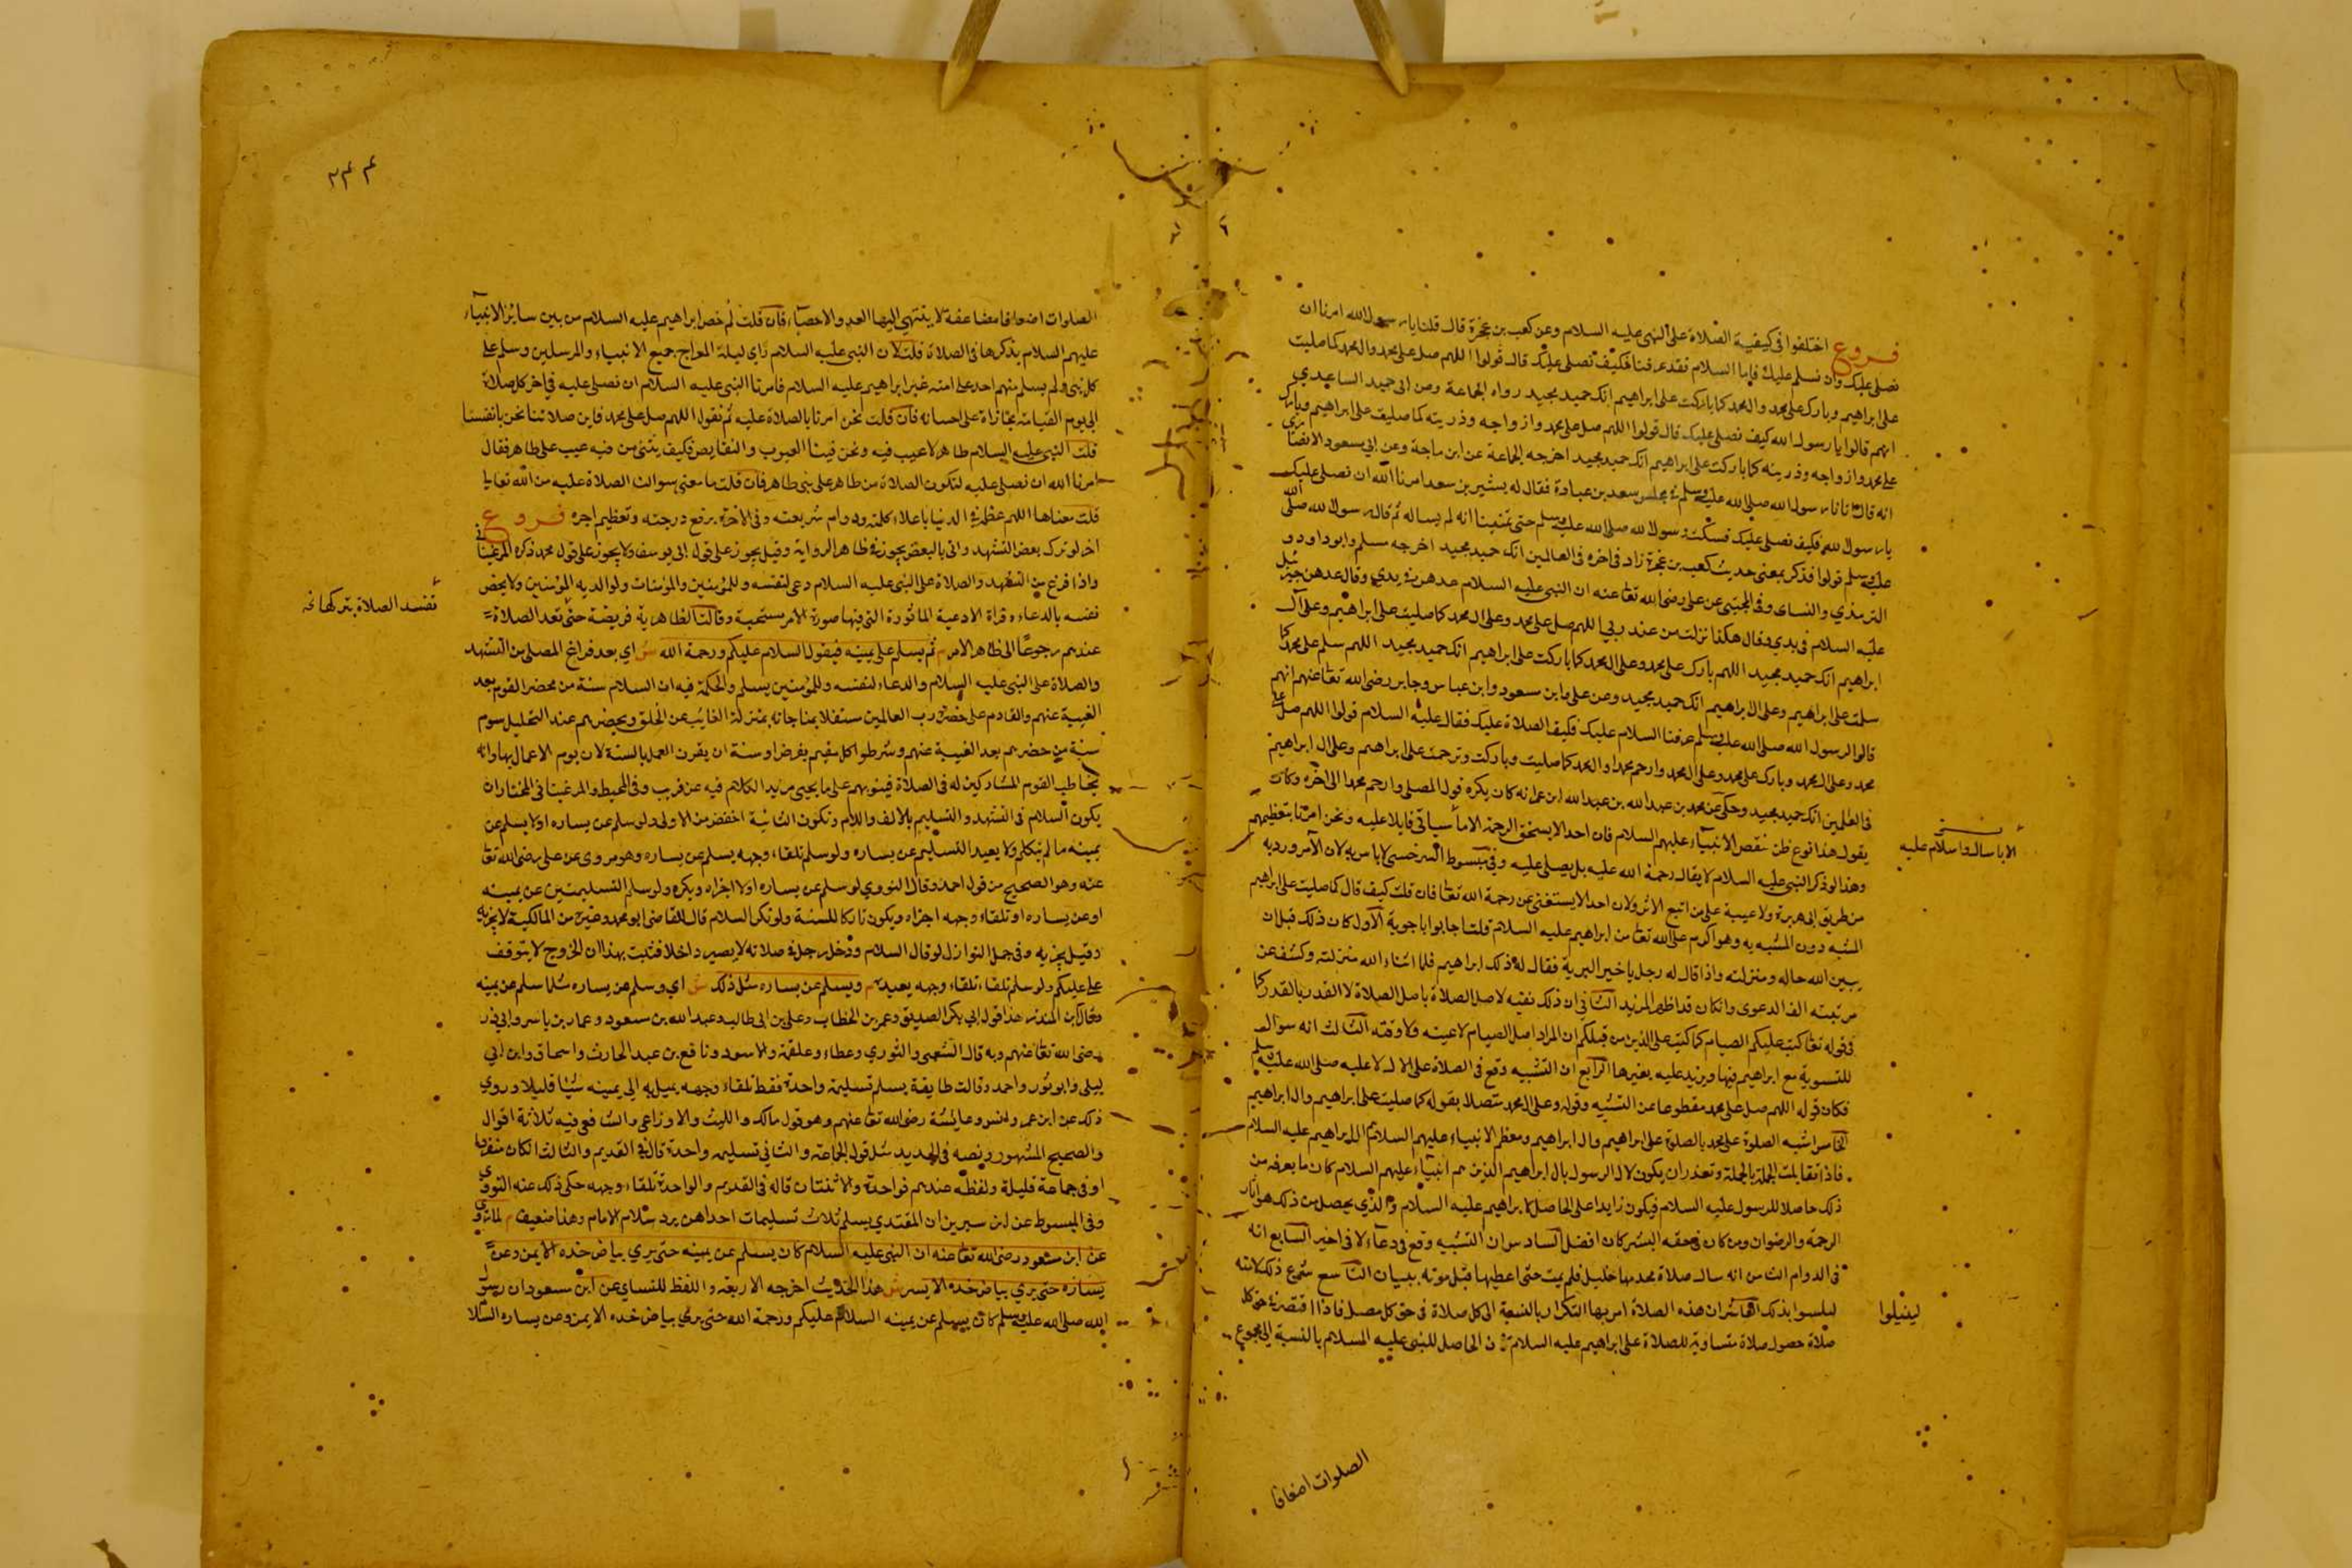 فروع اختلفوا في كيفية الصلاة على النبي عليه السلام وعن كعب بن عجرة قال قلنا يا رسول الله امرنا ان
نصلي عليك وان نسلم عليك فاما السلام فقد عرفنا فكيف نصلي عليك قال قولوا اللهم صل على محمد وال محمد كما صليت
على ابراهيم وبارك على محمد وال محمد كما باركت على ابراهيم انك حميد مجيد رواه الجماعة وعن ابي حميد الساعدي
انهم قالوا يا رسول الله كيف نصلي عليك قال قولوا اللهم صل على محمد وازواجه وذريته كما صليت على ابراهيم وبارك
على محمد وازواجه وذريته كما باركت على ابراهيم انك حميد مجيد اخرجه الجماعة عن ابن ماجة وعن ابي مسعود الانصاري
انه قال اتانا رسول الله صلى الله عليه وسلم في مجلس سعد بن عبادة فقال له بشير بن سعد امرنا الله ان نصلي عليك
يا رسول الله فكيف نصلي عليك فسكت رسول الله صلى الله عليه وسلم حتى تمنينا انه لم يساله ثم قال رسول الله صلى الله
عليه وسلم قولوا فذكر بمعنى حديث كعب بن عجرة زاد في اخره في العالمين انك حميد مجيد اخرجه مسلم وابو داود و
الترمذي والنساى وفي المجتبى عن علي رضى الله تعا عنه ان النبي عليه السلام عدهن في يدي وقال عدهن جبرئيل
عليه السلام في يدي وقال هكذا نزلت من عند ربي اللهم صل على محمد وعلى ال محمد كما صليت على ابراهيم وعلى آل
ابراهيم انك حميد مجيد اللهم بارك على محمد وعلى ال محمد كما باركت على ابراهيم انك حميد مجيد اللهم سلم على محمد كما
سلمت على ابراهيم وعلى ال ابراهيم انك حميد مجيد وعن على وابن مسعود وابن عباس وجابر رضى الله تعا عنهم انهم
قالوا لرسول الله صلى الله عليه وسلم عرفنا السلام عليك فكيف الصلاة عليك فقال عليه السلام قولوا اللهم صل على
محمد وعلى ال محمد وبارك على محمد وعلى ال محمد وارحم محمدا وال محمد كما صليت وباركت وترحمت على ابراهيم وعلى ال ابراهيم
في العلمين انك حميد مجيد وحكى عن محمد بن عبد الله بن عبد الله ابن عمر انه كان يكره قول المصلى وارحم محمدا الى اخره وكان
يقول هذا نوع ظن بنقص الانبياء عليهم السلام فان احدا لا يستحق الرحمة الا ما سياتي قابلا عليه ونحن امرنا بتعظيمهم
وهذا لو ذكر النبي عليه السلام لا يقال رحمة الله عليه بل يصلى عليه وفي مبسوط السرخسي لا باس به لان الآمر ورد به
من طريق ابي هبرة ولا عيبة على من اتبع الاثر ولان احدا لا يستغني عن رحمة الله تعا فان قلت كيف قال كما صليت على ابراهيم
المشبه دون المشبه به وهو اكرم على الله تعا من ابراهيم عليه السلام قلت اجابوا باجوبة الاول كان ذلك قبل ان
يبين الله حاله ومنزلته واذا قال له رجل يا خير البرية فقال له ذلك ابراهيم فلما اشاء الله منزلته وكشف عن
مرتبته الف الدعوى وان كان قد اظهر المزيد الثاني ان ذلك نفيه لاصل الصلاة باصل الصلاة لا القدر بالقدر كما
في قوله تعا كتب عليكم الصيام كما كتب على الذين من قبلكم ان المراد اصل الصيام لا عينه ولا وقته الثالث انه سوال
للتسوية مع ابراهيم فيها ويزيد عليه بغيرها الرابع ان التشبيه وقع في الصلاة على الال لا عليه صلى الله عليه وسلم
فكان قوله اللهم صل على محمد مقطوعا عن التشبيه وقوله وعلى ال محمد متصلا بقوله كما صليت على ابراهيم وال ابراهيم
الخامس اشبه الصلوة على محمد بالصلوة على ابراهيم وال ابراهيم ومعظم الانبياء عليهم السلام ال ابراهيم عليه السلام
فاذا تقابلت الجملة بالجملة وتعذر ان يكون لال الرسول بال ابراهيم الذين هم انبياء عليهم السلام كان ما يعرفه من
ذلك حاصلا للرسول عليه السلام فيكون زايدا على الحاصل لابراهيم عليه السلام والذي يحصل من ذلك هو اثار
الرحمة والرضوان ومن كان في حقه البشر كان افضل السادس ان التشبيه وقع في دعاء لا في اخبر السابع انه
في الدوام الثامن انه سال صلاة محمد مها خليل فلم يمت حتى اعطيها قبل موته ببيان التاسع شرع ذلك لامته
ليلسوا بذلك العاشر ان هذه الصلاة امر بها التكرار بالنسبة الى كل صلاة في حق كل مصل فاذا اقتضت في حق كل
صلاة حصول صلاة متساوية للصلاة على ابراهيم عليه السلام ان الحاصل للنبي عليه السلام بالنسبة الى مجموع
لينيلوا
الصلوات اضعافا
٢٤٤
الصلوات اضعافا مضاعفة لا ينتهي اليها العد والاحصاء فان قلت لم خص ابراهيم عليه السلام من بين ساير الانبياء
عليهم السلام بذكرها في الصلاة قلت لان النبي عليه السلام راي ليلة المعراج جميع الانبياء والمرسلين وسلم على
كل نبي ولم يسلم منهم احد على امته غير ابراهيم عليه السلام فامرنا النبي عليه السلام ان نصلي عليه في آخر كل صلاة
الى يوم القيامة مجازاة على احسانه فان قلت نحن امرنا بالصلاة عليه ثم نقول اللهم صل على محمد فاين صلاتنا نحن بانفسنا
قلت النبي عليه السلام طاهر لا عيب فيه ونحن فينا العيوب والنقايص فكيف يثني من فيه عيب على طاهر فقال
امرنا الله ان نصلي عليه لتكون الصلاة من طاهر على نبي طاهر فان قلت ما معنى سوالنا الصلاة عليه من الله تعالى
قلت معناها اللهم عظمه في الدنيا باعلاء كلمته ودوام شريعته وفي الآخرة برفع درجته وتعظيم اجره فروع
اخر لو ترك بعض التشهد واتى بالبعض يجوز في ظاهر الرواية وقيل يجوز على قول ابي يوسف ولا يجوز على قول محمد ذكره المرغيناني
واذا فرغ من التشهد والصلاة على النبي عليه السلام دعى لنفسه وللمؤمنين والمؤمنات ولوالديه المؤمنين ولا يخص
نفسه بالدعاء وقراة الادعية الماثورة التي فيها صورة الامر مستحبة وقالت الظاهرية فريضة حتى تعد الصلاة
تفسد الصلاة بتركها
عندهم رجوعا الى ظاهر الامر م ثم يسلم على يمينه فيقول السلام عليكم ورحمة الله ش اي بعد فراغ المصلى من التشهد
والصلاة على النبي عليه السلام والدعاء لنفسه وللمؤمنين يسلم والحكمة فيه ان السلام سنة من محضر القوم بعد
الغيبة عنهم والقادم على حضرة رب العالمين ستقلا بمناجاته بمنزلة الغايب عن الخلق ويحضرهم عند التحليل سوم
سنة من حضرهم بعد الغيبة عنهم وشرطوا كل مقيم بفرض او سنة ان يقرن العمل بالسنة لان يوم الاعمال بها وانه
يخاطب القوم المشاركين له في الصلاة فينويهم على ما يجيى مزيد الكلام فيه عن قريب وفي المحيط والمرغينا في المختار ان
يكون السلام في التشهد والتسليم بالالف واللام وتكون الثانية اخفض من الاولى ولو سلم عن يساره اولا يسلم عن
يمينه ما لم يتكلم ولا يعيد التسليم عن يساره ولو سلم تلقاء وجهه يسلم عن يساره وهو مروي عن على رضى الله تعا
عنه وهو الصحيح من قول احمد وقال النووي لو سلم عن يساره اولا اجزاه ويكره ولو سلم التسليمتين عن يمينه
او عن يساره او تلقاء وجهه اجزاه ويكون تاركا للسنة ولو نكر السلام قال القاضي ابو محمد وغيره من المالكية لا يجزيه
وقيل يجزيه وفي جمل النوازل لو قال السلام ودخل رجل في صلاته لا يصير داخلا فثبت بهذا ان الخروج لا يتوقف
على عليكم ولو سلم تلقاء تلقاء وجهه يعيده م ويسلم عن يساره مثل ذلك ش اي وسلم عن يساره مثل ما سلم عن يمينه
وقال ابن المنذر هذا قول ابي بكر الصديق وعمر بن الخطاب وعلى بن ابي طالب وعبد الله بن مسعود وعمار بن ياسر وابي ذر
رضى الله تعا عنهم وبه قال الشعبي والثوري وعطاء وعلقمة والاسود ونافع بن عبد الحارث واسحاق وابن ابي
ليلى وابو ثور واحمد وقالت طايفة يسلم تسليمة واحدة فقط تلقاء وجهه يميل به الى يمينه شيئا قليلا وروي
ذلك عن ابن عمر وانس وعايشة رضى الله تعا عنهم وهو قول مالك والليث والاوزاعي والشافعي فيه ثلاثة اقوال
والصحيح المشهور ونصه في الجديد مثل قول الجماعة والثاني تسليمة واحدة قال في القديم والثالث ان كان منفردا
او في جماعة قليلة ولفظه عندهم فواحدة والا ثنتان قاله في القديم والواحدة تلقاء وجهه حكى ذلك عنه النووي
وفي المبسوط عن ابن سيرين ان المقتدي يسلم ثلاث تسليمات احداهن يرد سلام الامام وهذا ضعيف م لما روى
عن ابن مسعود رضى الله تعا عنه ان النبي عليه السلام كان يسلم عن يمينه حتى يري بياض خده الايمن وعن
يساره حتى يري بياض خده الايسر ش هذا الحديث اخرجه الاربعة واللفظ للنساي عن ابن مسعود ان رسول
الله صلى الله عليه وسلم كان يسلم عن يمينه السلام عليكم ورحمة الله حتى يري بياض خده الايمن وعن يساره السلا